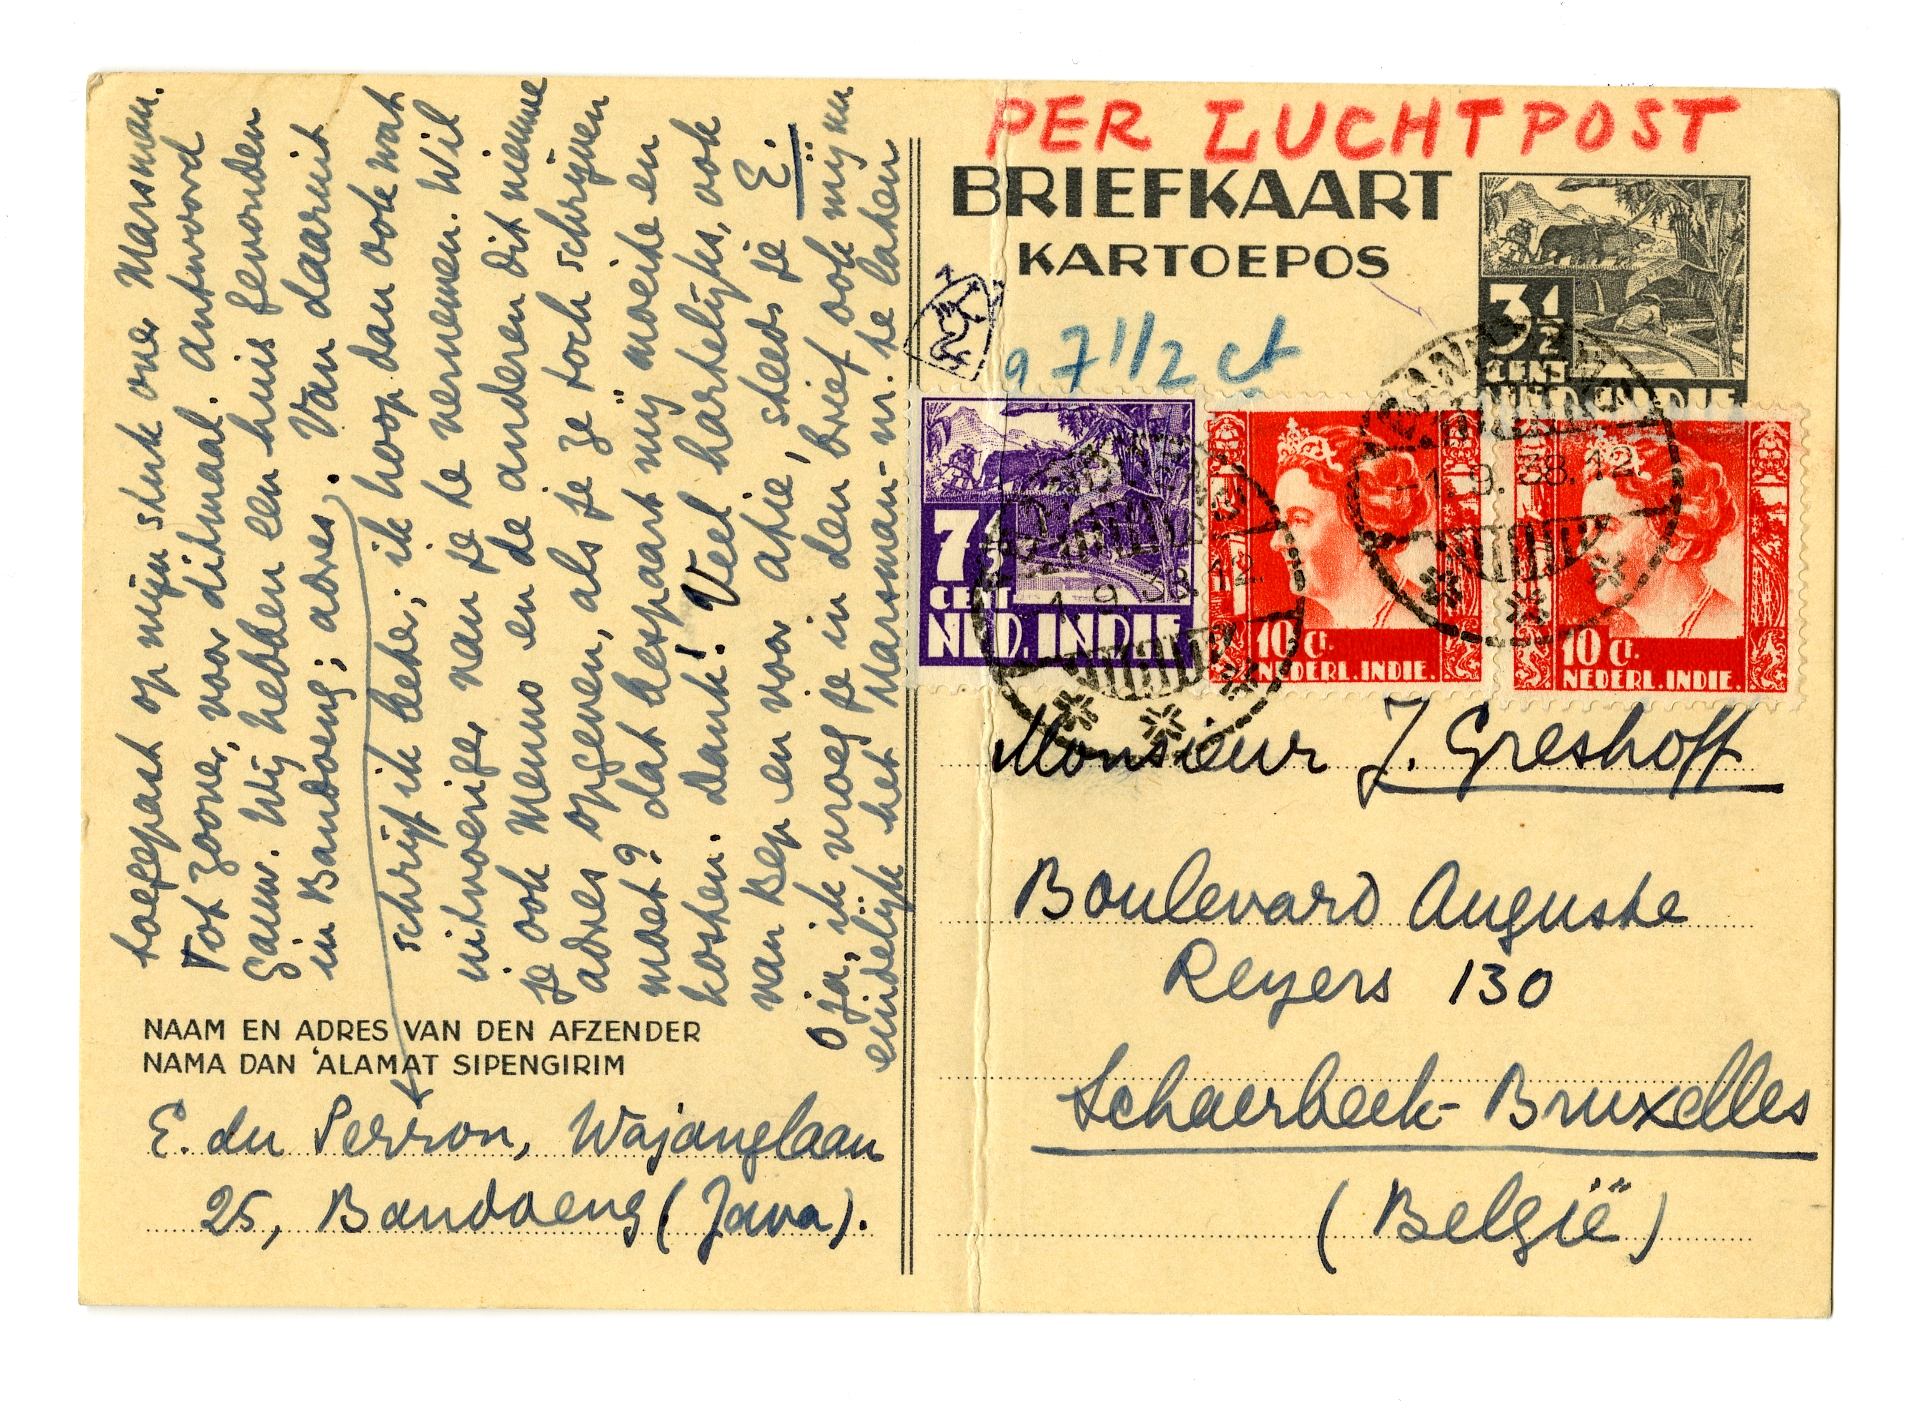 toegepast op mijn stuk over Marsman.
Tot zoover, voor ditmaal. Antwoord
gauw. Wij hebben een huis gevonden
in Bandoeng; adres. Van daaruit
schrijf ik beter; ik hoop dan ook wat
uitvoeriger van je te vernemen. Wil
je ook Menno en de anderen dit nieuwe
adres opgeven, als je ze toch schrijven
moet? dat bespaart mij moeite en
kosten. dank! Veel hartelijks, ook
van Bep en voor Atie, steeds je E.
O ja, ik vroeg je in den brief ook mij nu
eindelijk het Marsman-nr. te laten
NAAM EN ADRES VAN DEN AFZENDER
NAMA DAN 'ALAMAT SIPENGIRIM
E. du Perron, Wajanglaan
25, Bandoeng (Java).
PER LUCHTPOST
BRIEFKAART
KARTOEPOS
3 1/2
CENT
NED. INDIE
7 1/2 ct
7 1/2
CENT
NED. INDIE
10 Ct.
NEDERL. INDIE.
10 Ct.
NEDERL. INDIE.
1.9.38.12.
-1.9.38.12
Monsieur J. Greshoff
Boulevard Auguste
Reyers 130
Schaerbeek-Bruxelles
(België)